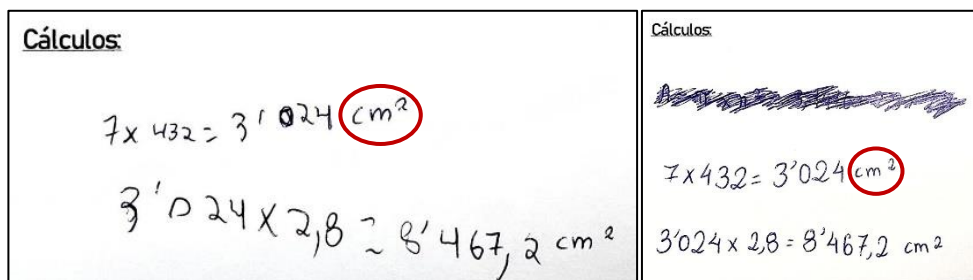 Cálculos:
7 x 432 = 3'024 cm²
3'024 x 2,8 = 8'467,2 cm²
Cálculos:
7 x 432 = 3'024 cm²
3'024 x 2,8 = 8'467,2 cm²